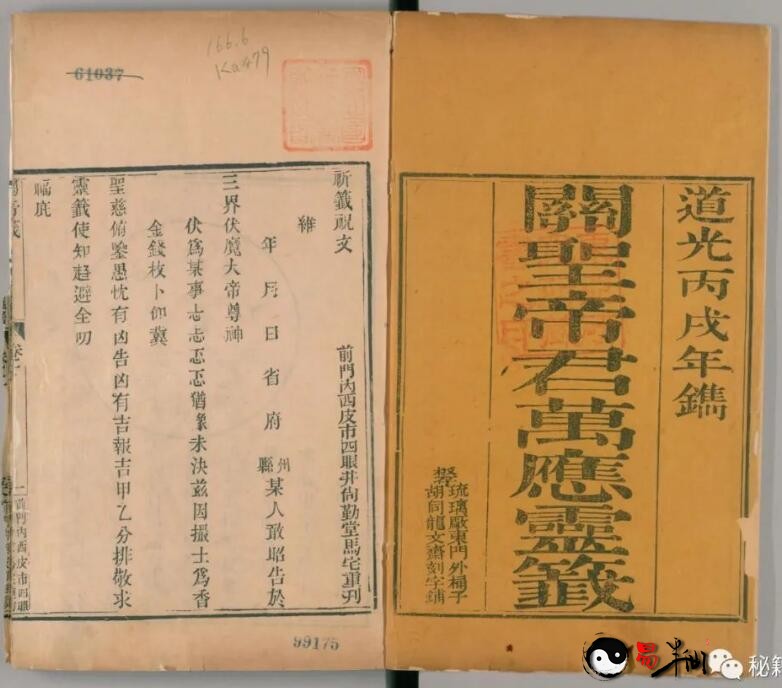 道光丙戌年鐫
關聖帝君萬應靈籤
琉璃廠東門外桶子
胡同龍文齋刻字鋪
祈籤祝文
前門內西皮市四眼井尚勤堂馬宅重刋
維
年月日省府州縣某人敢昭告於
三界伏魔大帝尊神
伏爲某事忐忐忑忑猶豫未決茲因撮土爲香
金錢枚卜仰冀
聖慈俯鑒愚忱有凶告凶有吉報吉甲乙分排敬求
靈籤使知趨避全叨
福庇
61037
166.6
Ka479
99175
易半仙
秘籍